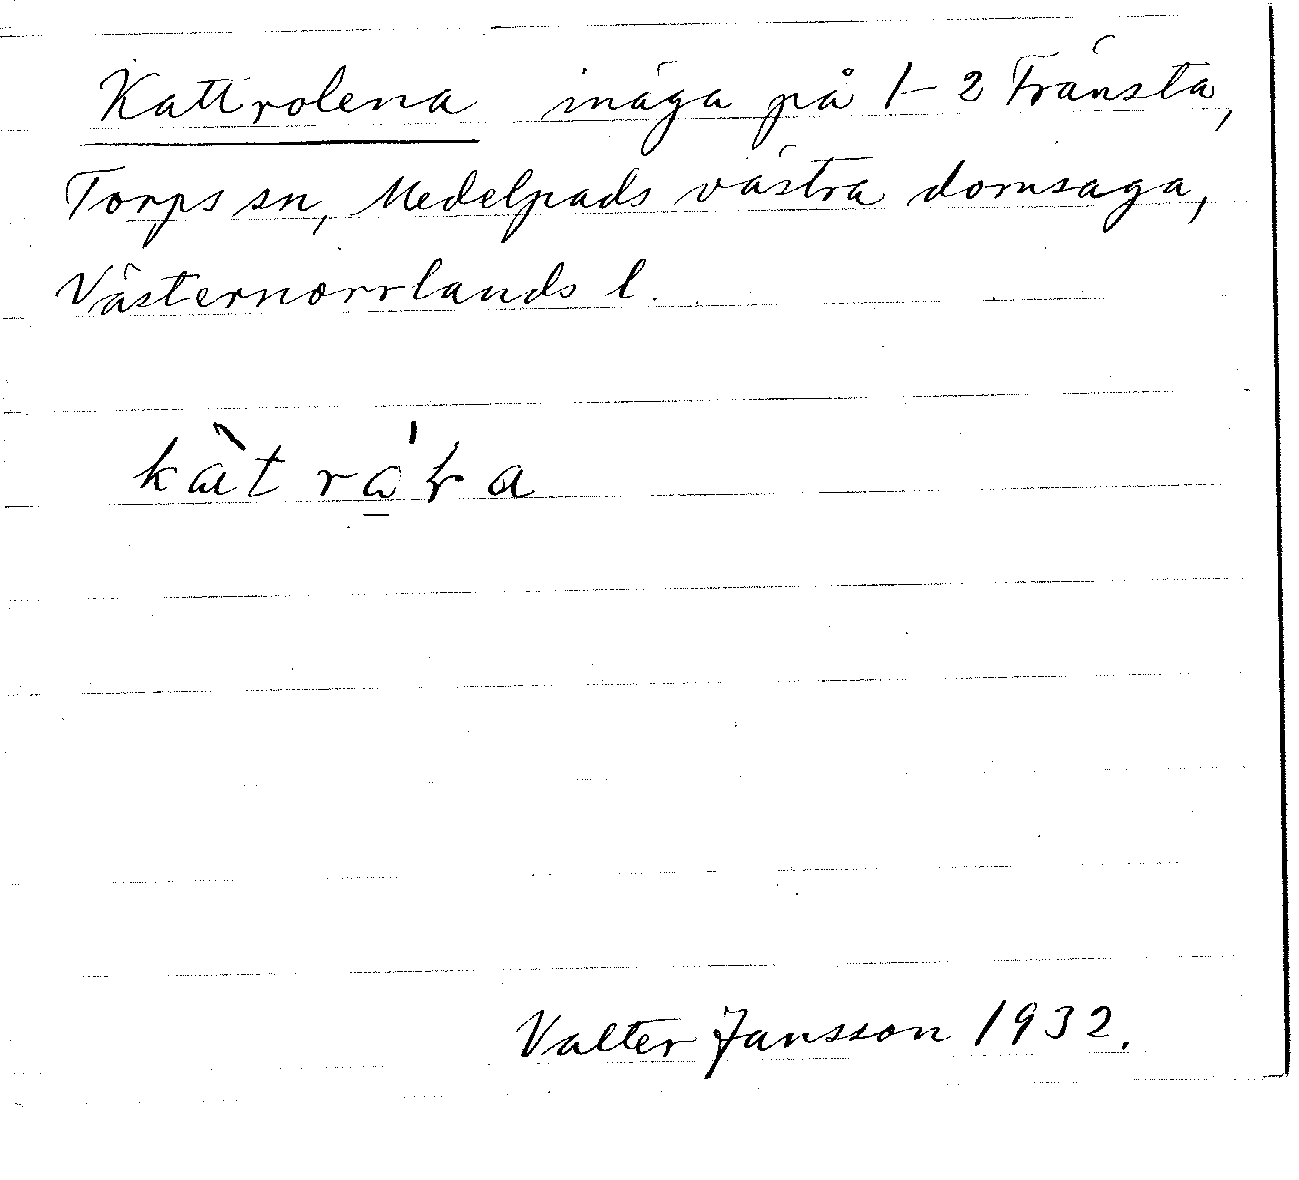 Kattrolena inäga på 1-2 Fränsta,
Torps sn, Medelpads västra domsaga,
Västernorrlands l.
Valter Jansson 1932.